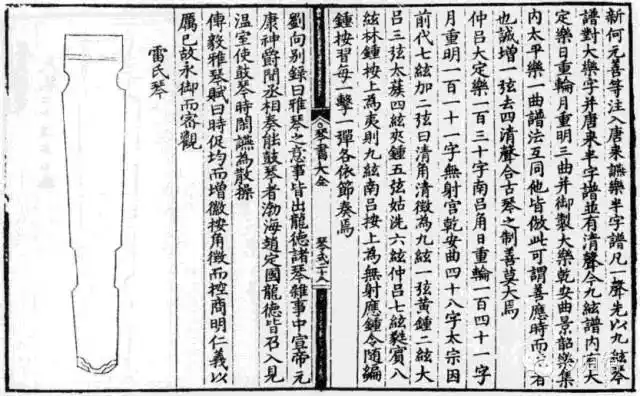 新何元善等注入唐来讌樂半字譜凡一聲先以九絃琴
譜對大樂字并唐来半字譜並有清聲今九絃譜内有大
定樂日重輪月重明三曲并御製大樂乾安曲景韶樂集
内太平樂一曲譜法互同他皆倣此可謂善應時而者
也誠增一弦去四清聲合古琴之制善莫大焉
仲吕大定樂一百三十字南吕角日重輪一百四十一字
月重明一百一十一字無射宫乾安曲四十八字太宗因
前代七絃加二弦曰清角清徵為九絃一弦黄鍾二絃大
吕三弦太蔟四絃夾鍾五弦姑洗六絃仲吕七絃蕤賔八
絃林鍾按上為夷則九絃南吕按上為無射應鍾令随編
鍾按習每一擊一彈各依節奏焉
琴書大全
琴式二十
劉向別録曰雅琴之意事皆出龍德諸琴雜事中宣帝元
康神爵間丞相奏能鼓琴者渤海趙定國龍德皆召入見
温室使鼓琴時閒讌為散操
傳毅雅琴賦曰時促均而增徽按角徵而控商明仁義以
厲已故永御而密親
雷氏琴